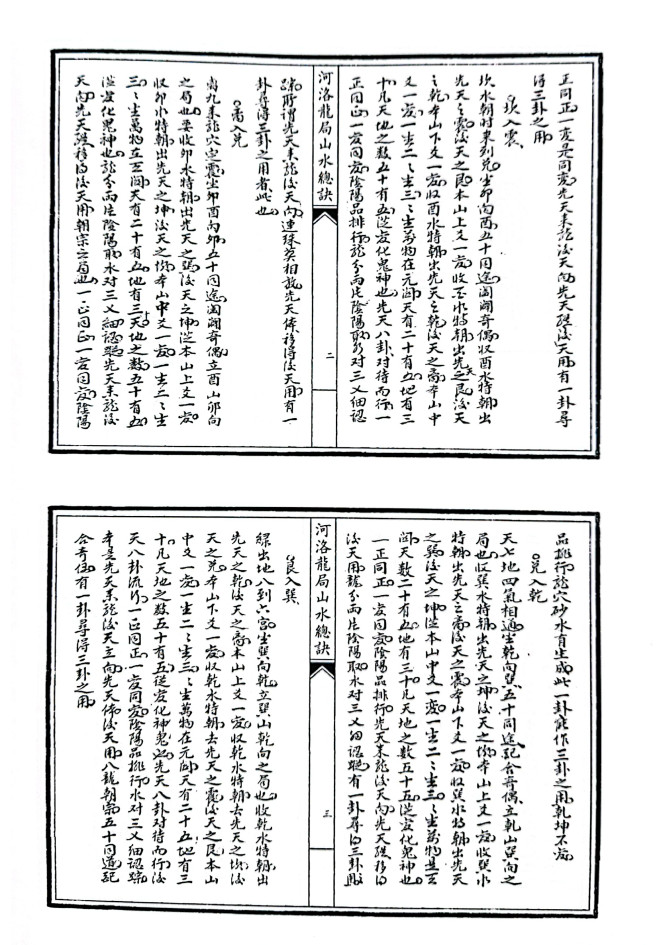 正同正一爻是同爻先天来龍後天向先天經後天用有一卦尋
得三卦之用
坎入震
坎水朝時来到兑坐卯向酉五十同途闔闢奇偶收酉水特朝出
先天之震後天之艮本山上爻一変收水特朝出先之艮後天
之乾本山下爻一変收酉水特朝出先天之乾後天之离本山中
爻一変一生二二生三三生萬物在元闔天有二十有五地有三
十凡天地之数五十有五従变化鬼神也先天八卦对待而行一
正同正一変同爻陰陽品排行龍分両片陰陽取水对三叉细認
河洛龍局山水總訣
二
踪所謂先天来龍後天向連珠莫相放先天体後得後天用有一
卦尋得三卦之用者此也
离入兑
离九来龍穴定震坐卯酉向卯五十同途闔闢奇偶立酉山卯向
之局也要收卯水特朝出先天之巽後天之坤従本山上爻一変
收卯水特朝出先天之坤後天之坎本山中爻一変一生二二生
三三生萬物在玄闔天有二十有五地有三天地之数五十有五
従変化鬼神也龍分両片陰陽取水对三叉細認踪先天来龍後
天向先天經後得後天用朝宗之局也一正同正一変同变陰陽
品排行龍穴砂水有生成此一卦能作三卦之用乾坤不
兑入乾
天七地四氣相通坐乾向巽五十同途記合奇偶立乾山巽向之
局也收巽水特朝出先天之坤後天之坎本山上爻一変收巽水
特朝出先天之离後天之震本山下爻一変收巽水特朝出先天
之巽後天之坤従本山中爻一変一生二二生三三生萬物在玄
闔天数二十有五地有三十凡天地之数五十五従変化鬼神也
一正同正一変同变陰陽品排行先天来龍後天向先天經後得
後天用龍分両片陰陽取水对三叉细認蹤有一卦尋得三卦用
河洛龍局山水總訣
三
艮入巽
緑出地八到六宫坐巽向乾立巽山乾向之局也收乾水特朝出
先天之乾後天之离本山上爻一変收乾水特朝去先天之坎後
天之兑本山下爻一変收乾水特朝去先天之震後天之艮本山
中爻一変一生二二生三三生萬物在元闔天有二十五地有三
十凡天地之数五十有五従变化神鬼也先天八卦对待而行後
天八卦流行一正同正一変同变陰陽品排行水对三叉细認踪
本是先天来龍後天立向先天体後天用八龍朝宗五十同途記
合奇偶有一卦尋得三卦之用